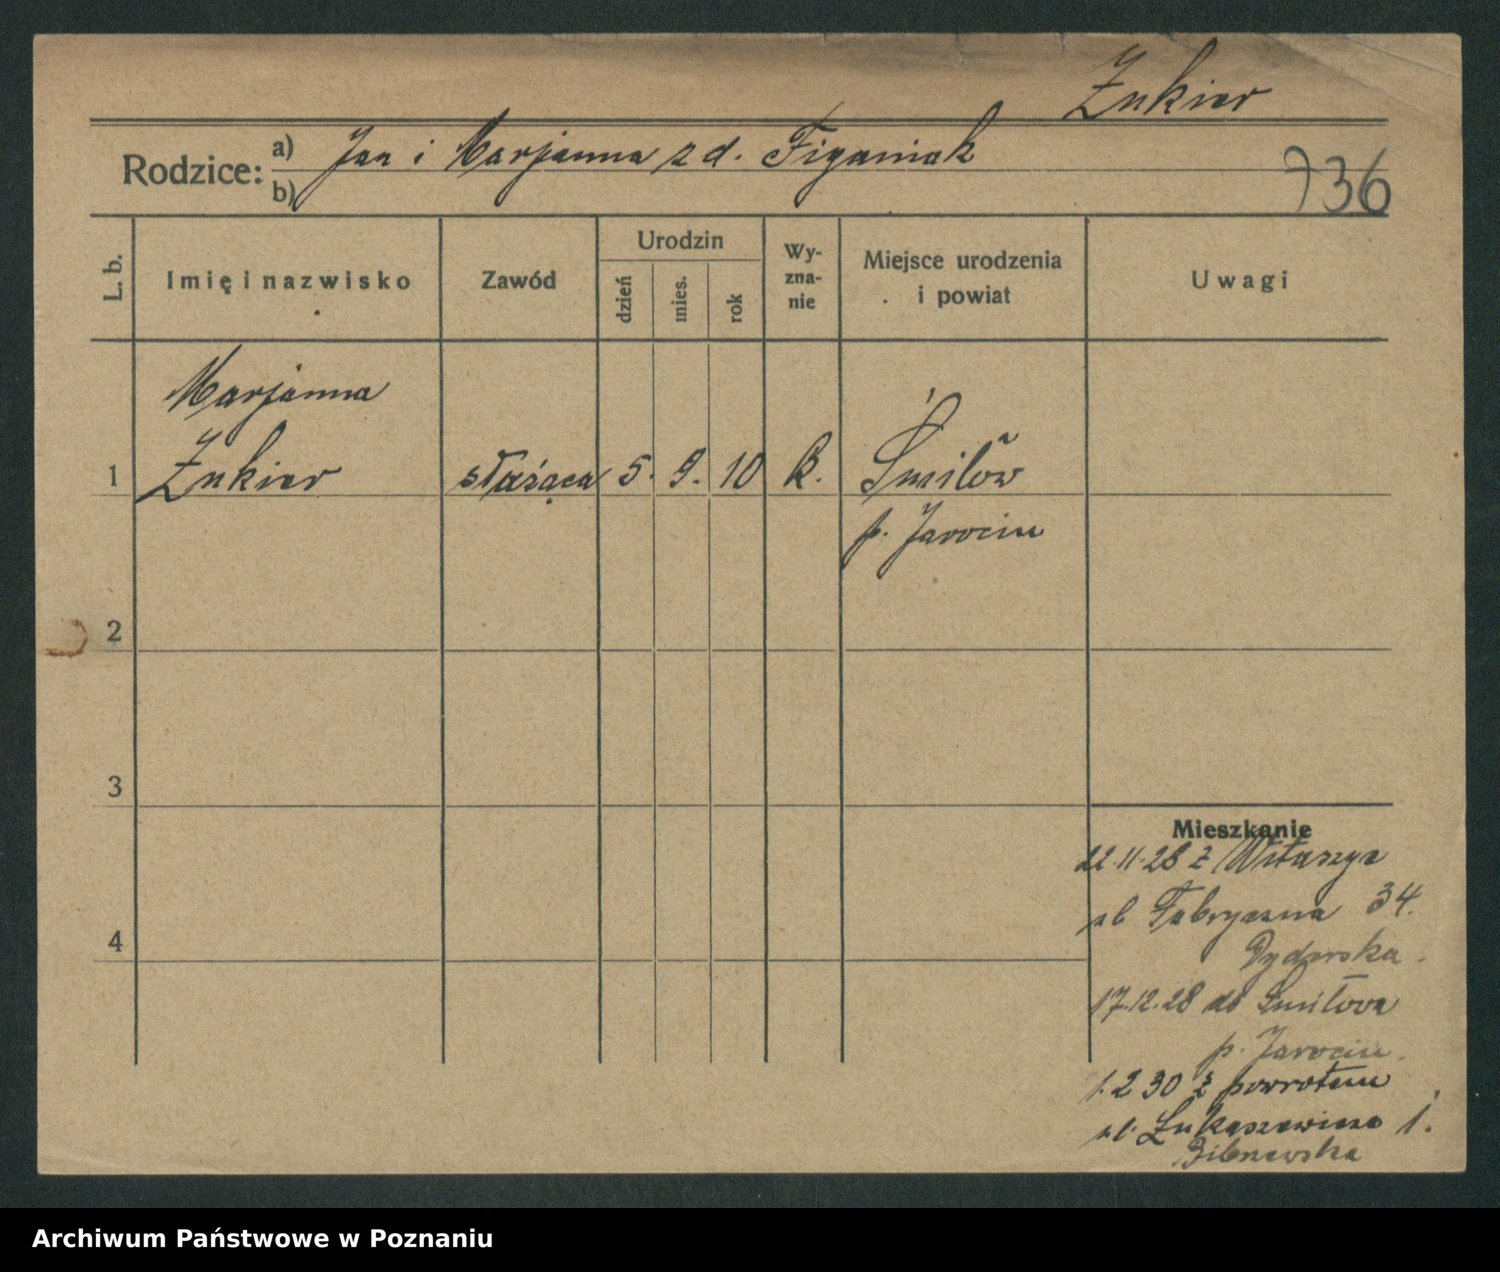 Żukier
Rodzice: a) Jan i Marjanna z d. Figaniak
b)
736
L. b.
Imię i nazwisko
Zawód
Urodzin
dzień
mies.
rok
Wy-
zna-
nie
Miejsce urodzenia
i powiat
Uwagi
Marjanna
1 Żukier służąca 5. 9. 10 k. Śmiłów
p. Jarocin
2
3
Mieszkanie
22.11.28 z Witaszyc
ul Fabryczna 34.
4
17.12.28 do Śmiłowa
p. Jarocin.
1.2 30 z powrotem
ul. Łukaszewicza 1.
Archiwum Państwowe w Poznaniu